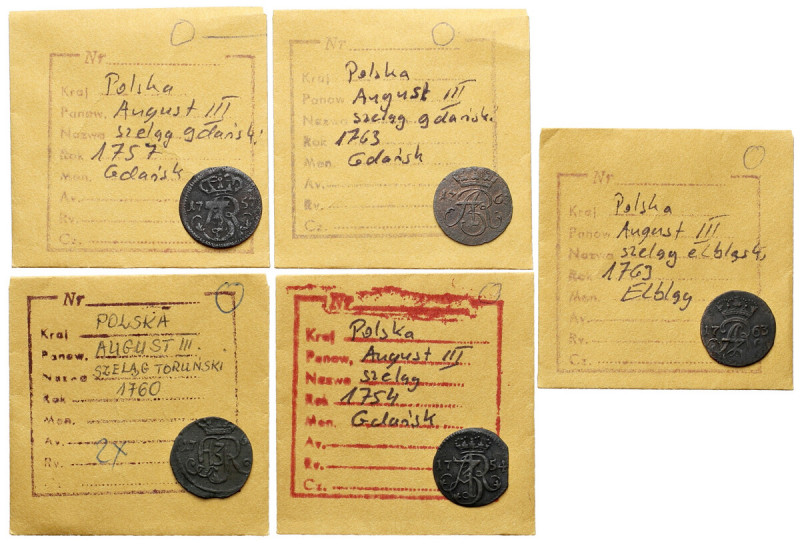 Nr
Kraj Polska
Panow. August III
Nazwa szeląg gdański
Rok 1757
Men. Gdańsk
Av.
Rv.
Cz.
1757
Nr
Kraj Polska
Panow August III
Nazwa szeląg gdański
Rok 1763
Men. Gdańsk
Av.
Rv.
Cz.
Nr
Kraj Polska
Panow August III
Nazwa szeląg elbląski
Rok 1763
Men. Elbląg
Av.
Rv.
Cz.
1763
Nr
Kraj POLSKA
Panow. AUGUST III.
Nazwa SZELĄG TORUŃSKI
Rok 1760
Men.
Av.
Rv. 2X
Cz.
Nr
Kraj Polska
Panow. August III
Nazwa szeląg
Rok 1754
Men. Gdańsk
Av.
Rv.
Cz.
1754